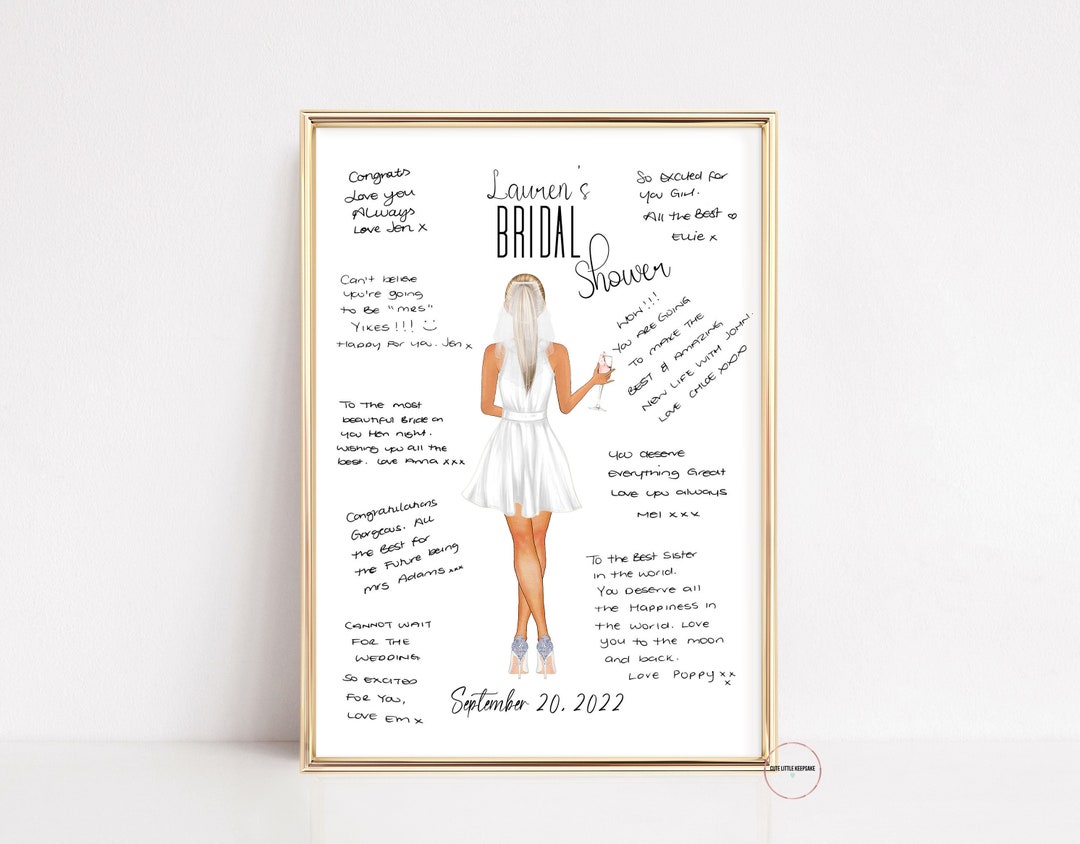 Lauren's
BRIDAL
Shower
Congrats
Love you
Always
Love Jen x
Can't believe
you're going
to Be "mrs"
Yikes!!!
Happy For you. Jen x
To the most
beautiful Bride on
you Hen night.
Wishing you all the
best. Love Anna xxx
Congratulations
Gorgeous. All
the Best for
the Future being
mrs Adams xxx
CANNOT WAIT
FOR THE
WEDDING
So EXCITED
FOR You,
Love Em x
So Excited for
You Girl.
All the Best
Ellie x
WOW!!!
You ARE GOING
To MAKE THE
BEST & AMAZING
NEW LIFE WITH JOHN.
LOVE CHLOE XOXO
You deserve
Everything Great
Love you always
Mel xxx
To the Best Sister
in the world.
You Deserve all
the Happiness in
the World. Love
you to the moon
and back.
Love Poppy xx
x
September 20, 2022
CUTE LITTLE KEEPSAKE